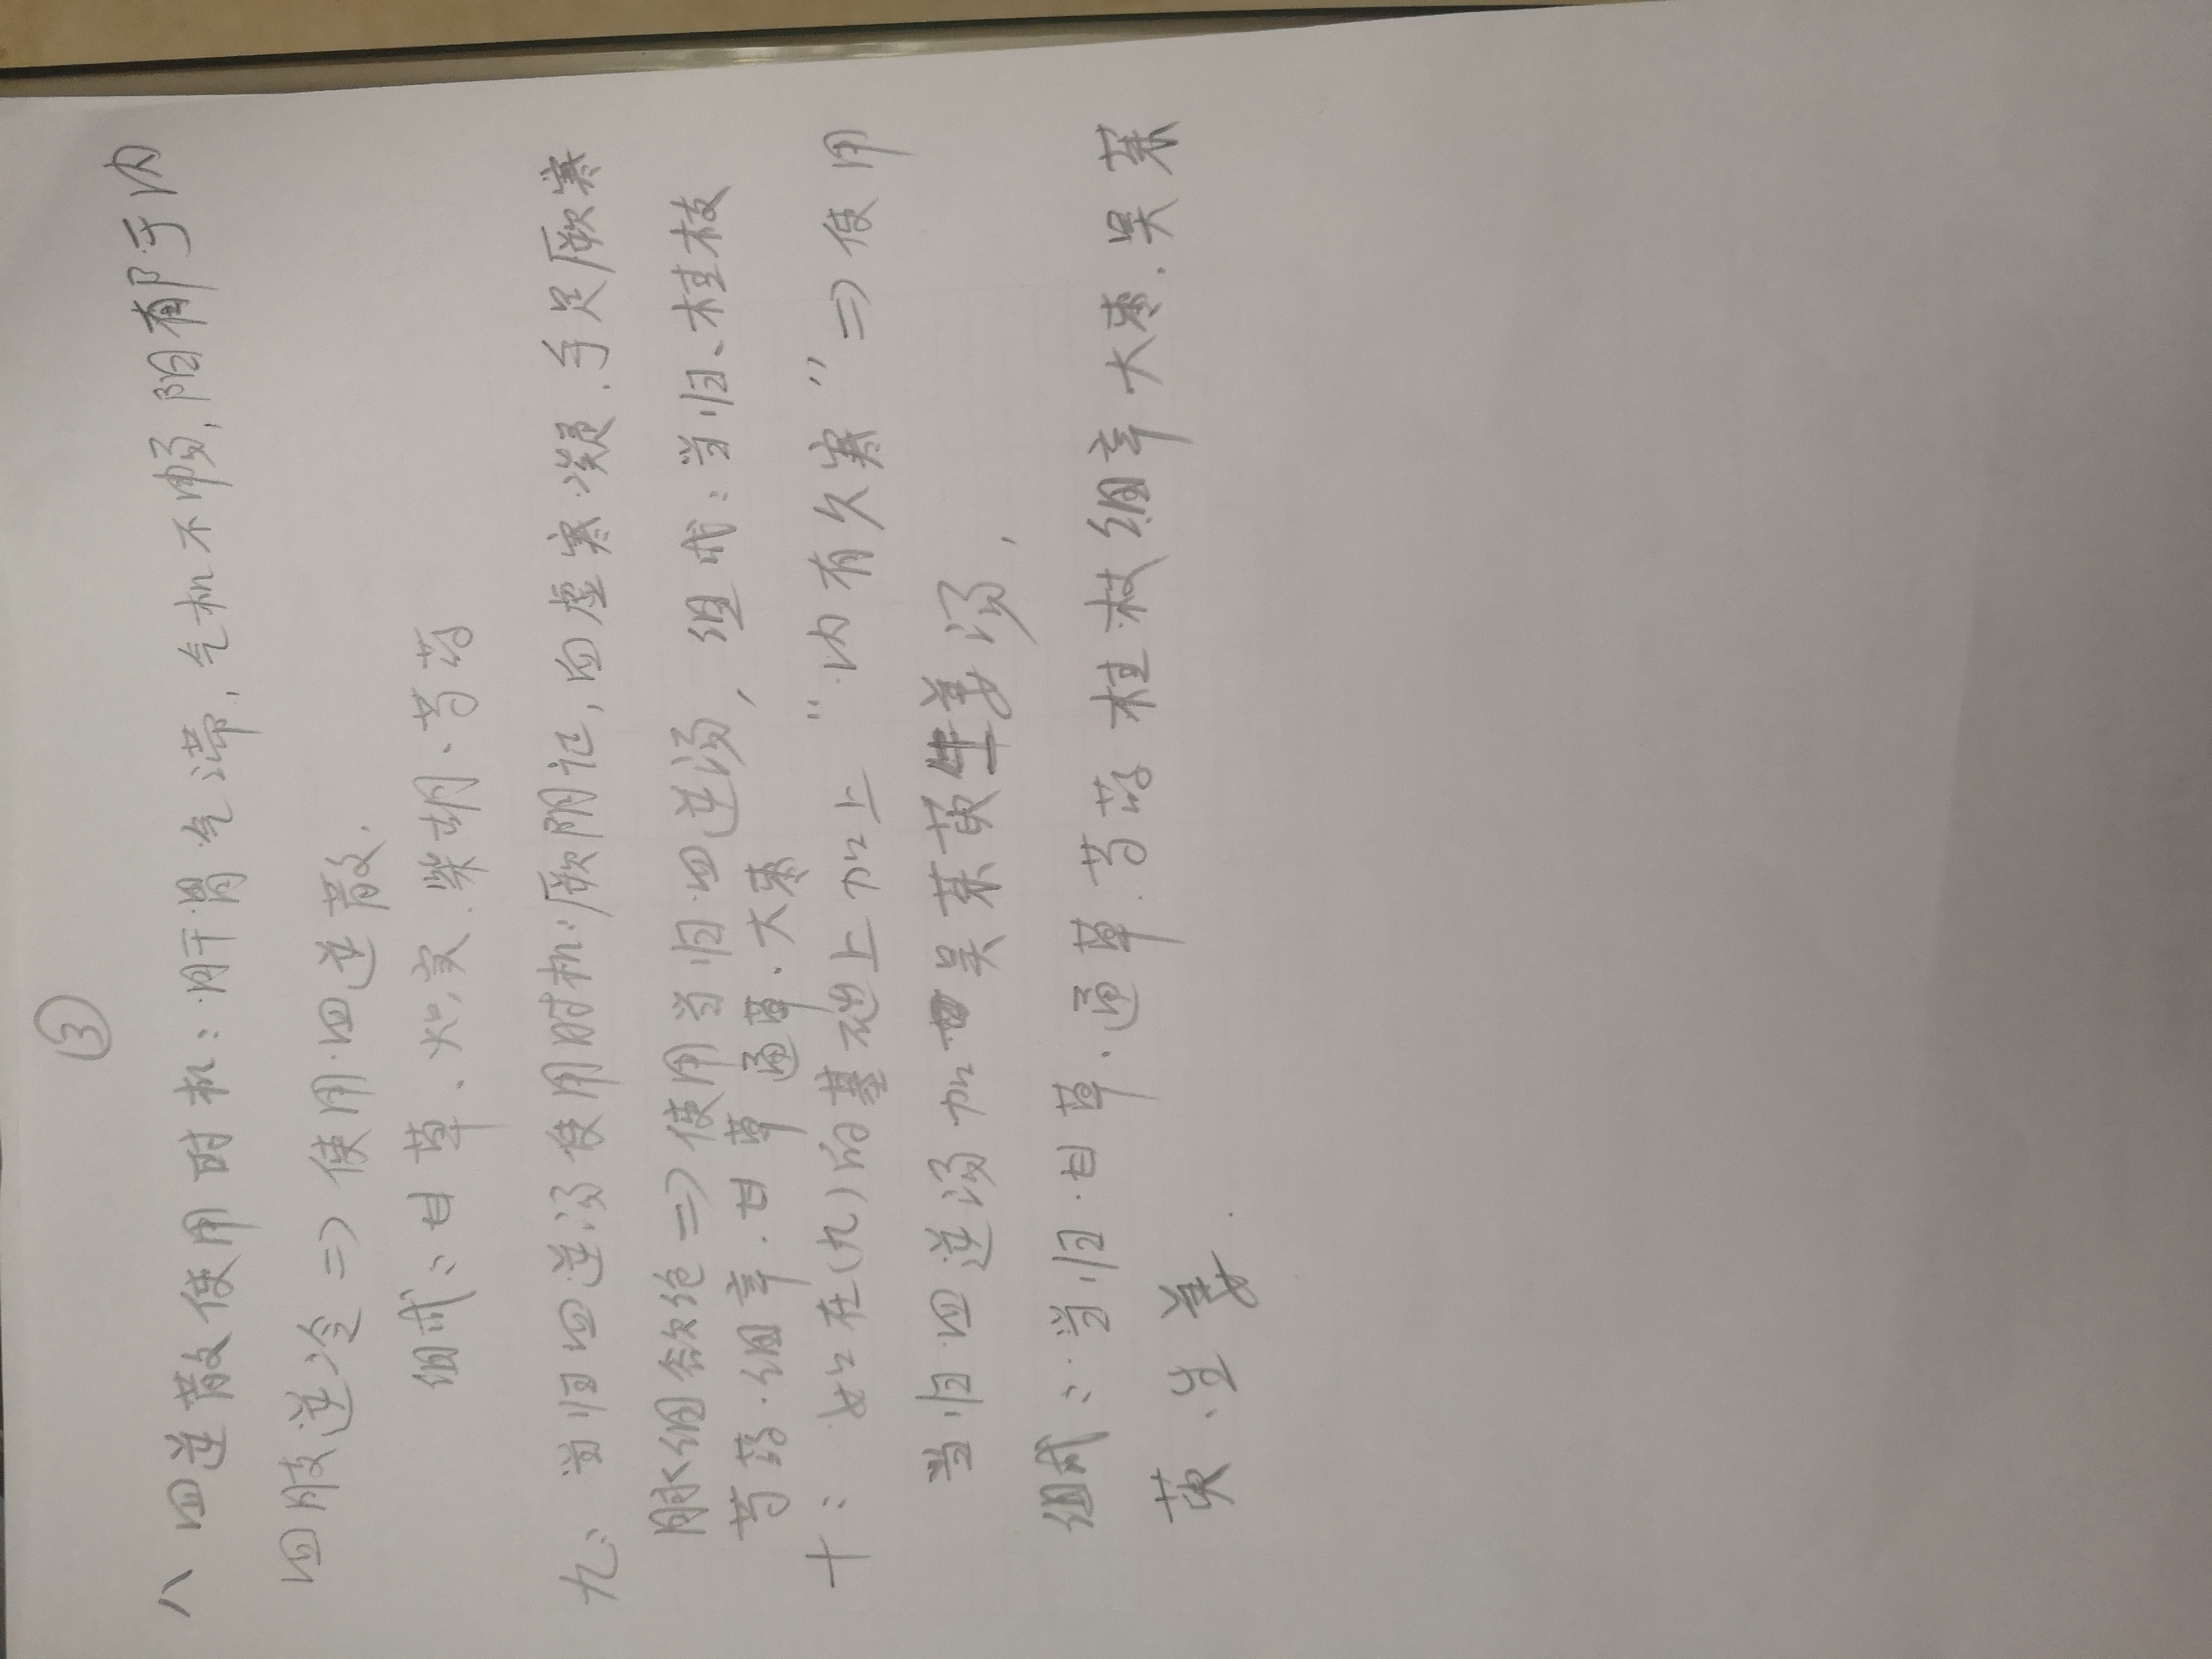 ③
八 四逆散使用时机：用于胃气滞，气机不畅，阳郁于内
四肢逆冷 => 使用四逆散．
组成：甘草、枳实．柴胡、芍药
九、当归四逆汤使用时机：厥阴证，血虚寒凝．手足厥寒
脉细欲绝 => 使用当归四逆汤，组成：当归、桂枝
芍药．细辛．甘草 通草．大枣
十：如在(九)的基础上加上 "内有久寒" => 使用
当归四逆汤加吴茱萸生姜汤，
组成：当归．甘草．通草．芍药 桂枝 细辛 大枣．吴茱
萸、生姜．